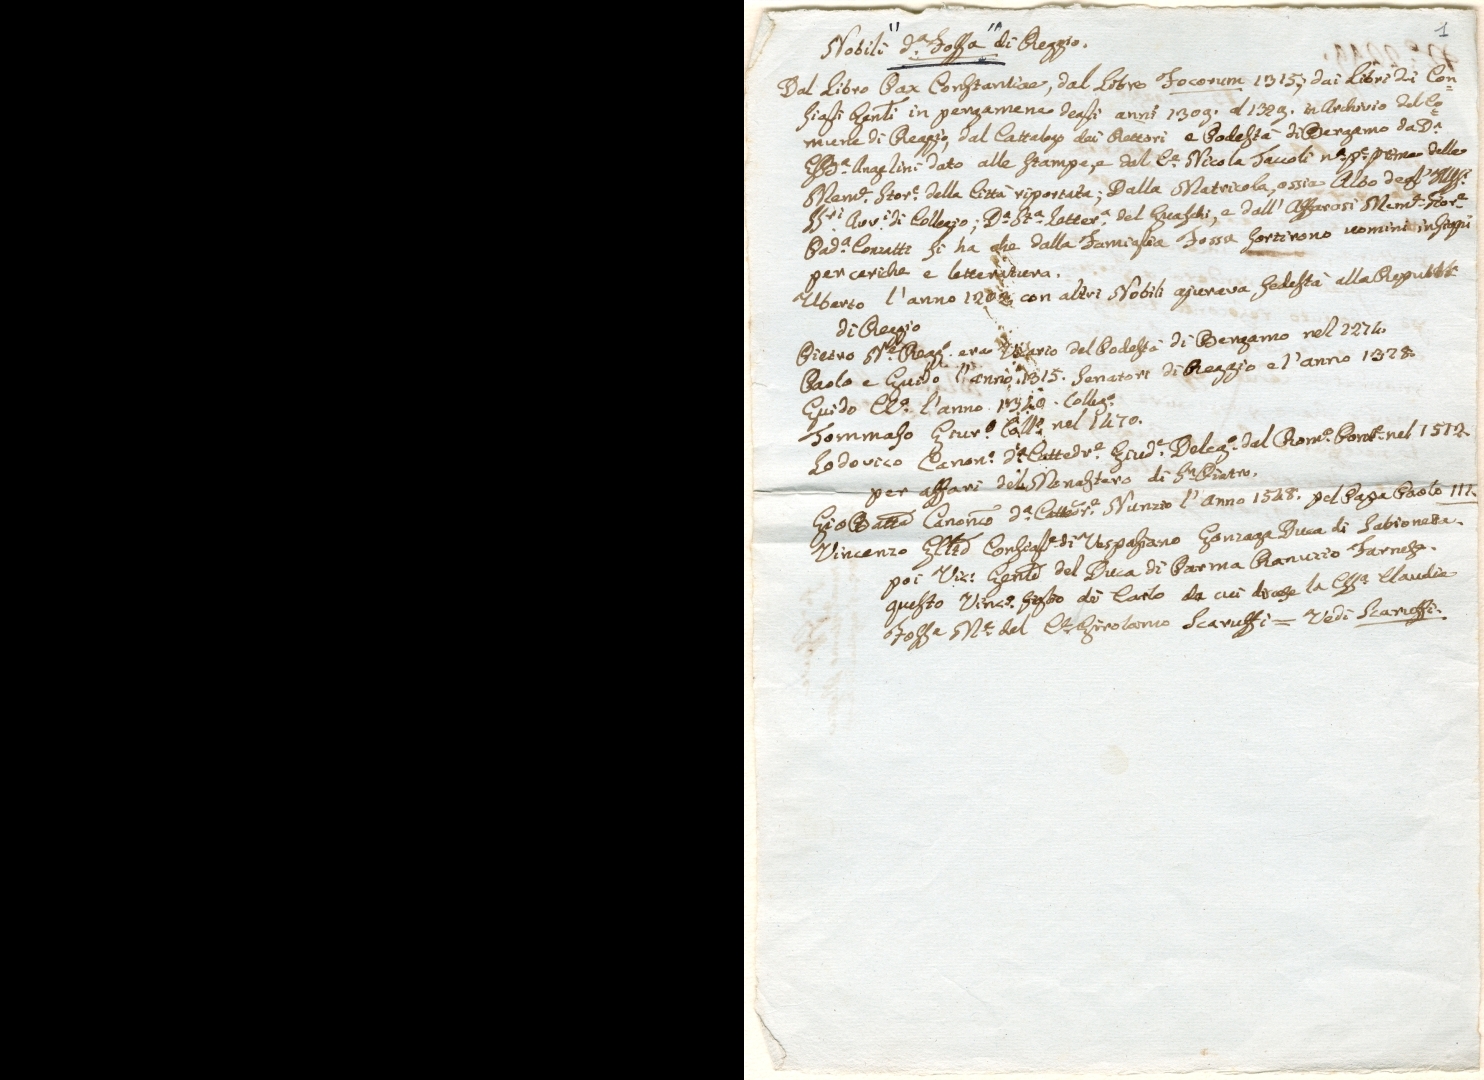 1
Nobili "d.ª Fossa" di Reggio.
Dal Libro Pax Constantiae, dal Libro Focorum 1315, dai Libri dei Con=
sigli Genli in pergamena degli anni 1309. al 1329. in Archivio del Co=
mune di Reggio, dal Cattalogo dei Rettori e Podestà di Bergamo da D.ª
Angelini dato alle stampe, e dal C.e Nicola Taccoli p.e prima delle
Mem.e Stor.e della Città riportata; Dalla Matricola, ossia Albo degl'
Avv.ti di Collegio; D.ª St.ª Letter.ª del Guaschi, e dall' Affarosi Mem.e Stor.e
Pad.ª Conzatti si ha che dalla Famiglia Fossa sortirono uomini insigni
per cariche e letteratura.
Uberto l'anno 1202 con altri Nobili giurava fedeltà alla Repubbl.
di Reggio
Pietro N.e Regg.o era Vicario del Podestà di Bergamo nel 1274
Paolo e Guido l'anno 1315. Senatori di Reggio e l'anno 1328.
Guido l'anno 1310. Colleg.o
Tommaso Giur.o Coll.o nel 1470.
Lodovico Canon.o d.ª Cattedr.e Giud.e Deleg.o dal Rom.o Pont.e nel 1512
per affari del Monastero di S.n Pietro.
Gio Batta Canonco d.ª Cattedr.e Nunzio l'Anno 1548. pel Papa Paolo III.
Vincenzo Consigl.e di Vespasiano Gonzaga Duca di Sabioneta.
poi Vic.o Genle del Duca di Parma Ranuccio Farnese.
questo Vinc.o figlio di Carlo da cui discese la Claudia
Fossa M.e del C.e Girolamo Scaruffi = Vedi Scaruffi.